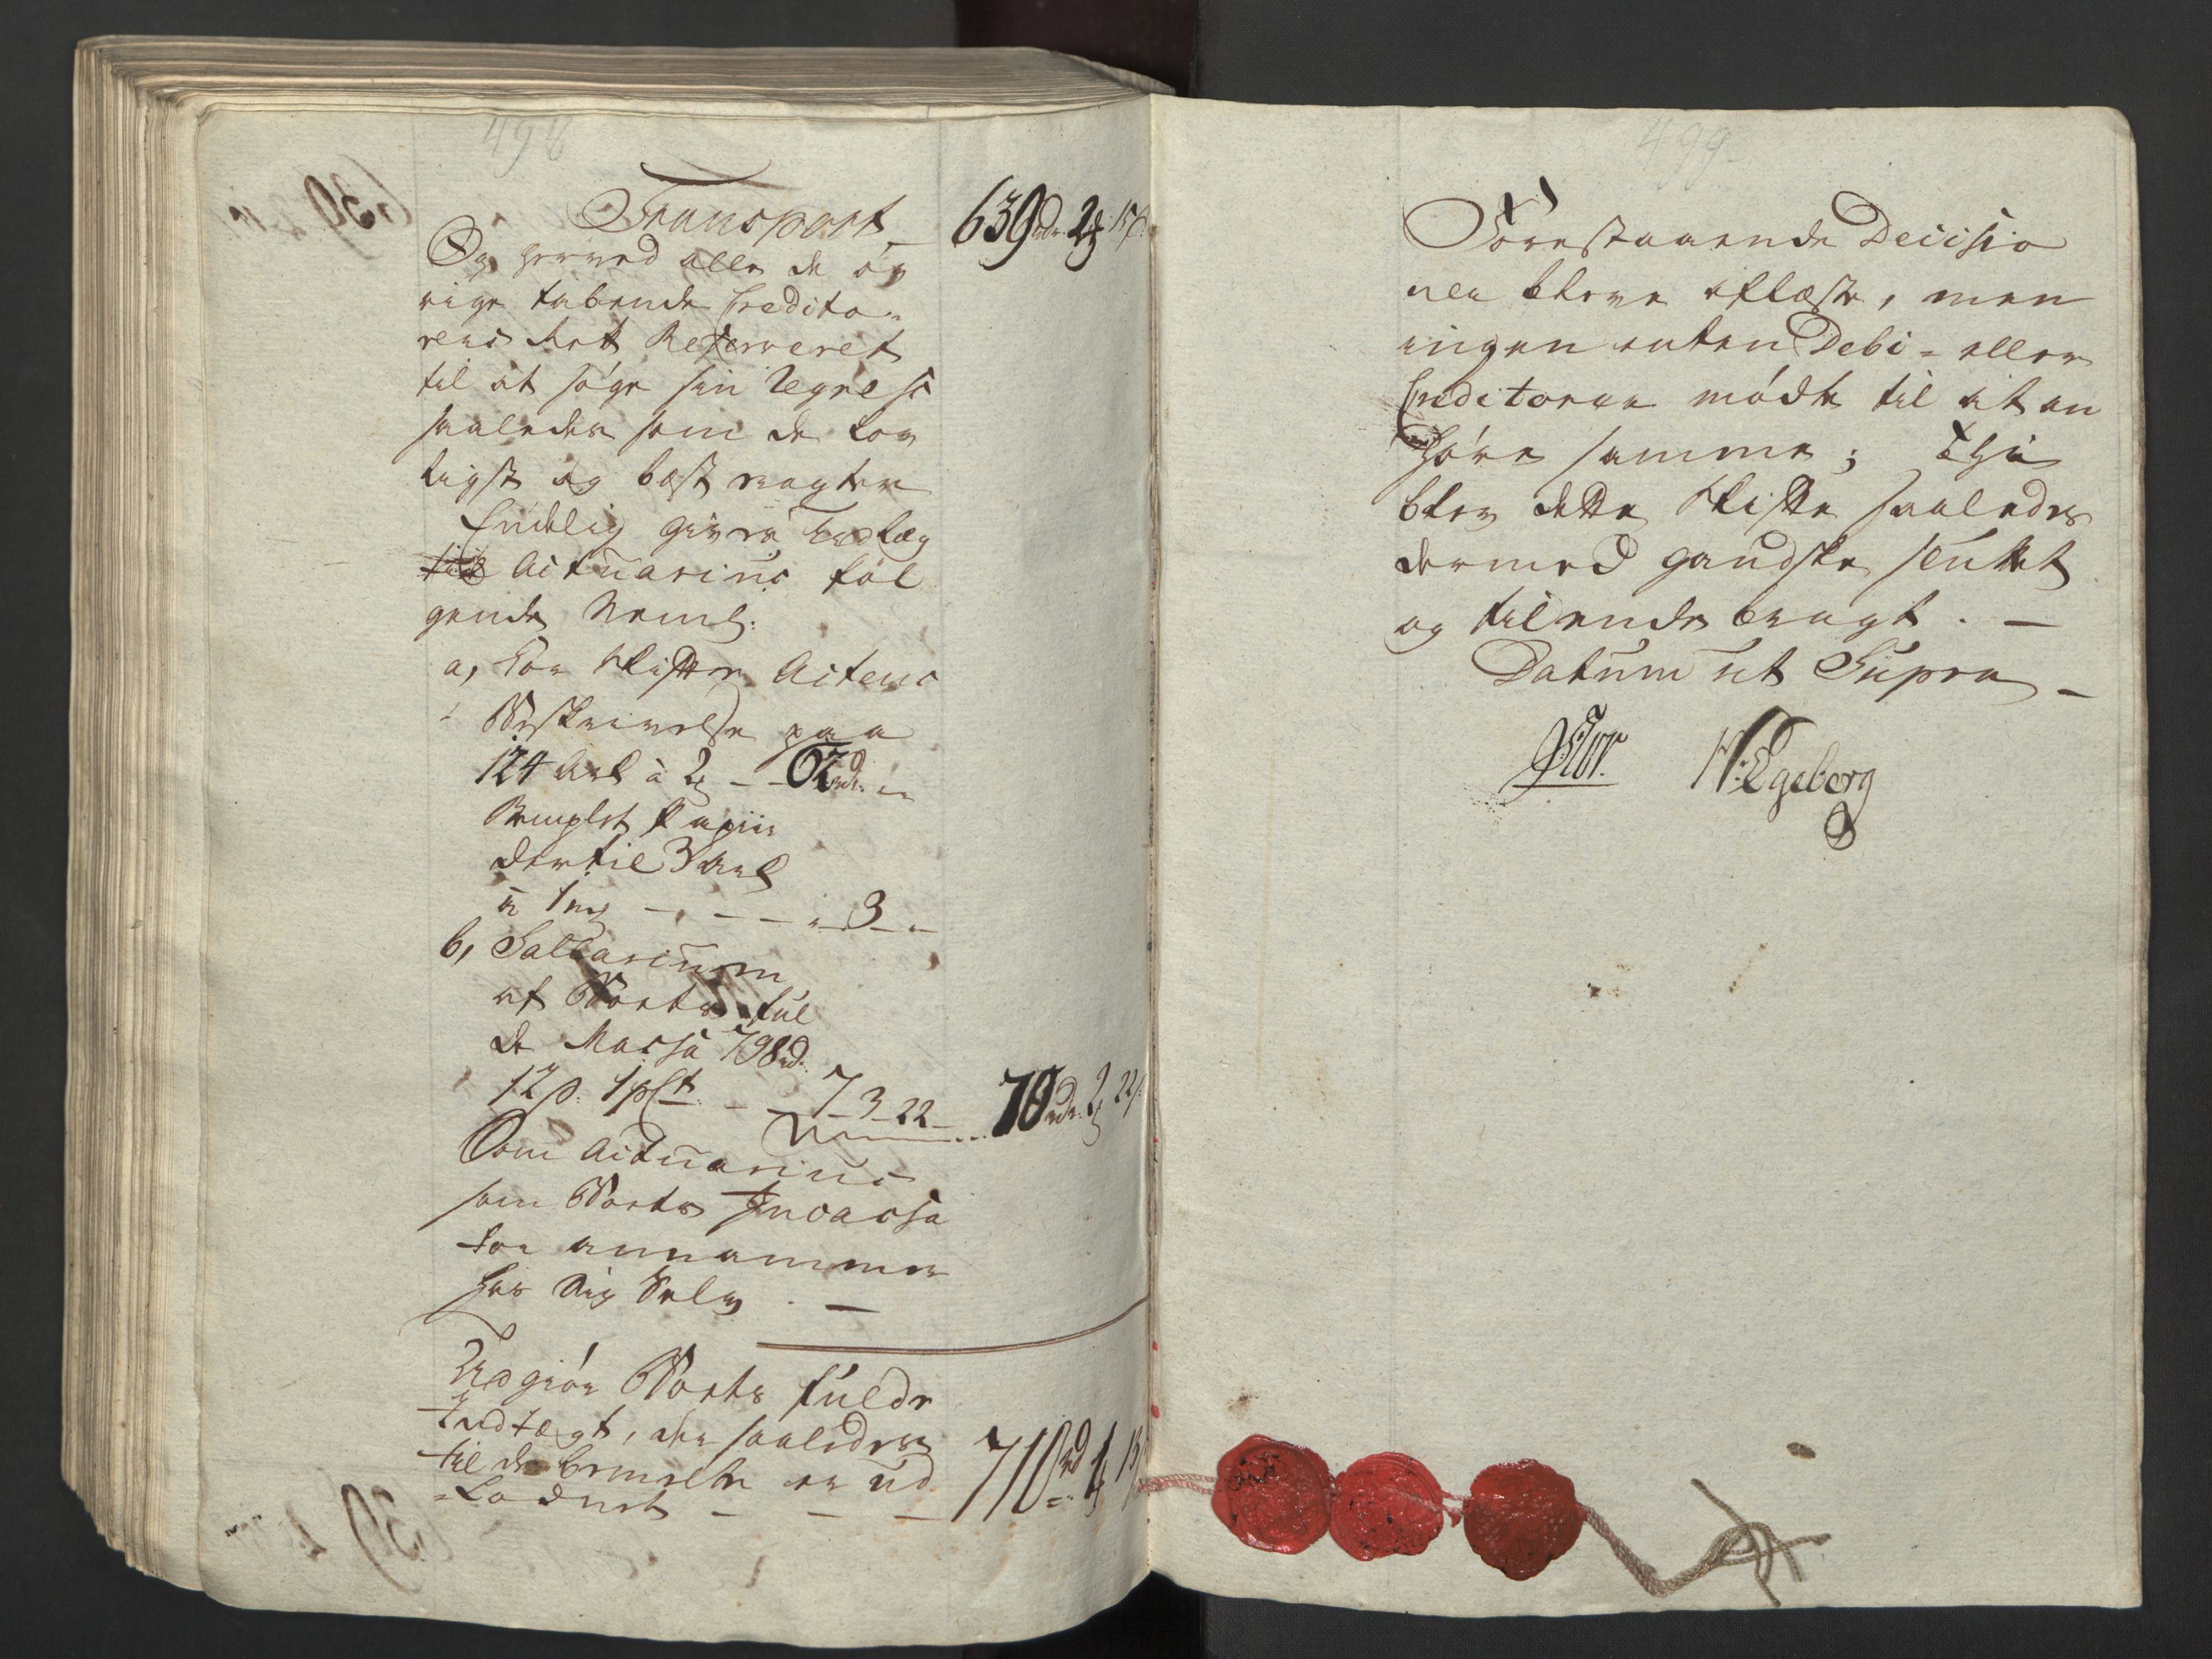 498
Transport _ 639rdr. 2 ß 15 ß.
Og hermed alle de öv
rige tabende Credito-
rers Ret Reserveret
til at søge sin Regress
saaledes som de lov
ligst og best magter
Endelig gives Udlæg
til Actuarius føl
gende Neml:
a, For Skiftes Actens
Beskrivelse paa
124 Ark à 2 ß - - 62 rdr. "
Stemplet Papiir
dertil 3 Ark
à 1 mk - - - - " 3 "
b, Sallarium
af Boets ful
de Massa 798 rd.
12 ß. 1 pCt. - - 7 - 3 - 22 -
70 rdr. 2 ß 22 ß.
Som Actuarius
som Boets Incassa
tor annammer
hos Sig Selv . —
Udgiör Boets fulde
Indtægt, der saaledes
til de bemelte er ud
=lodnet - - - 710 rd 4 ß 13 ß
499
Forestaaende Decisio
ner bleve oplæste, men
ingen enten Debi= eller
Creditorer mödte til at an
höre samme; Thi
blev dette Skifte saaledes
dermed gandske sluttet
og tilendebragt . —
Datum ut Supra —
Flor. H: Egeberg